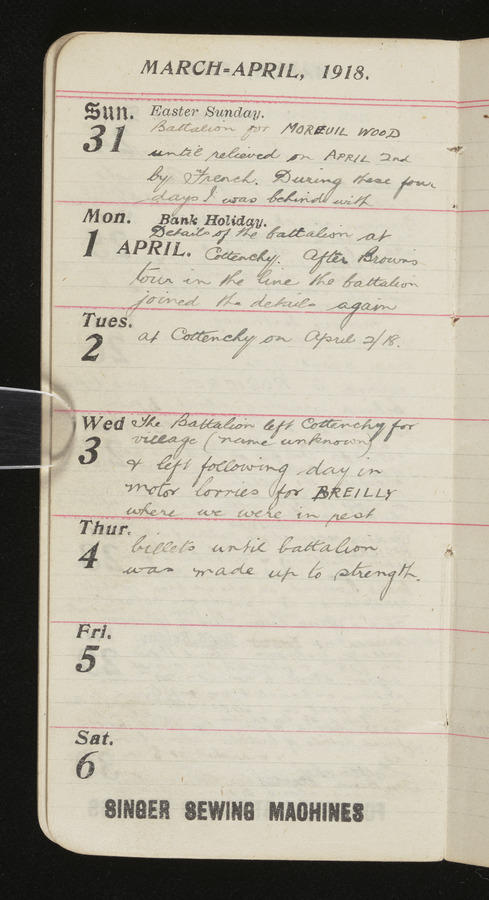 MARCH-APRIL, 1918.
Sun. Easter Sunday.
31 Battalion for MOREUIL WOOD
until relieved on APRIL 2nd
by French. During these four
days I was behind with
Mon. Bank Holiday.
Details of the battalion at
1 APRIL. Cottenchy. After Browns
tour in the line the battalion
joined the details again
Tues.
2 at Cottenchy on April 2/18.
Wed The Battalion left Cottenchy for
village (name unknown)
3 & left following day in
motor lorries for BREILLY
where we were in rest
Thur.
4 billets until battalion
was made up to strength.
Fri.
5
Sat.
6
SINGER SEWING MACHINES